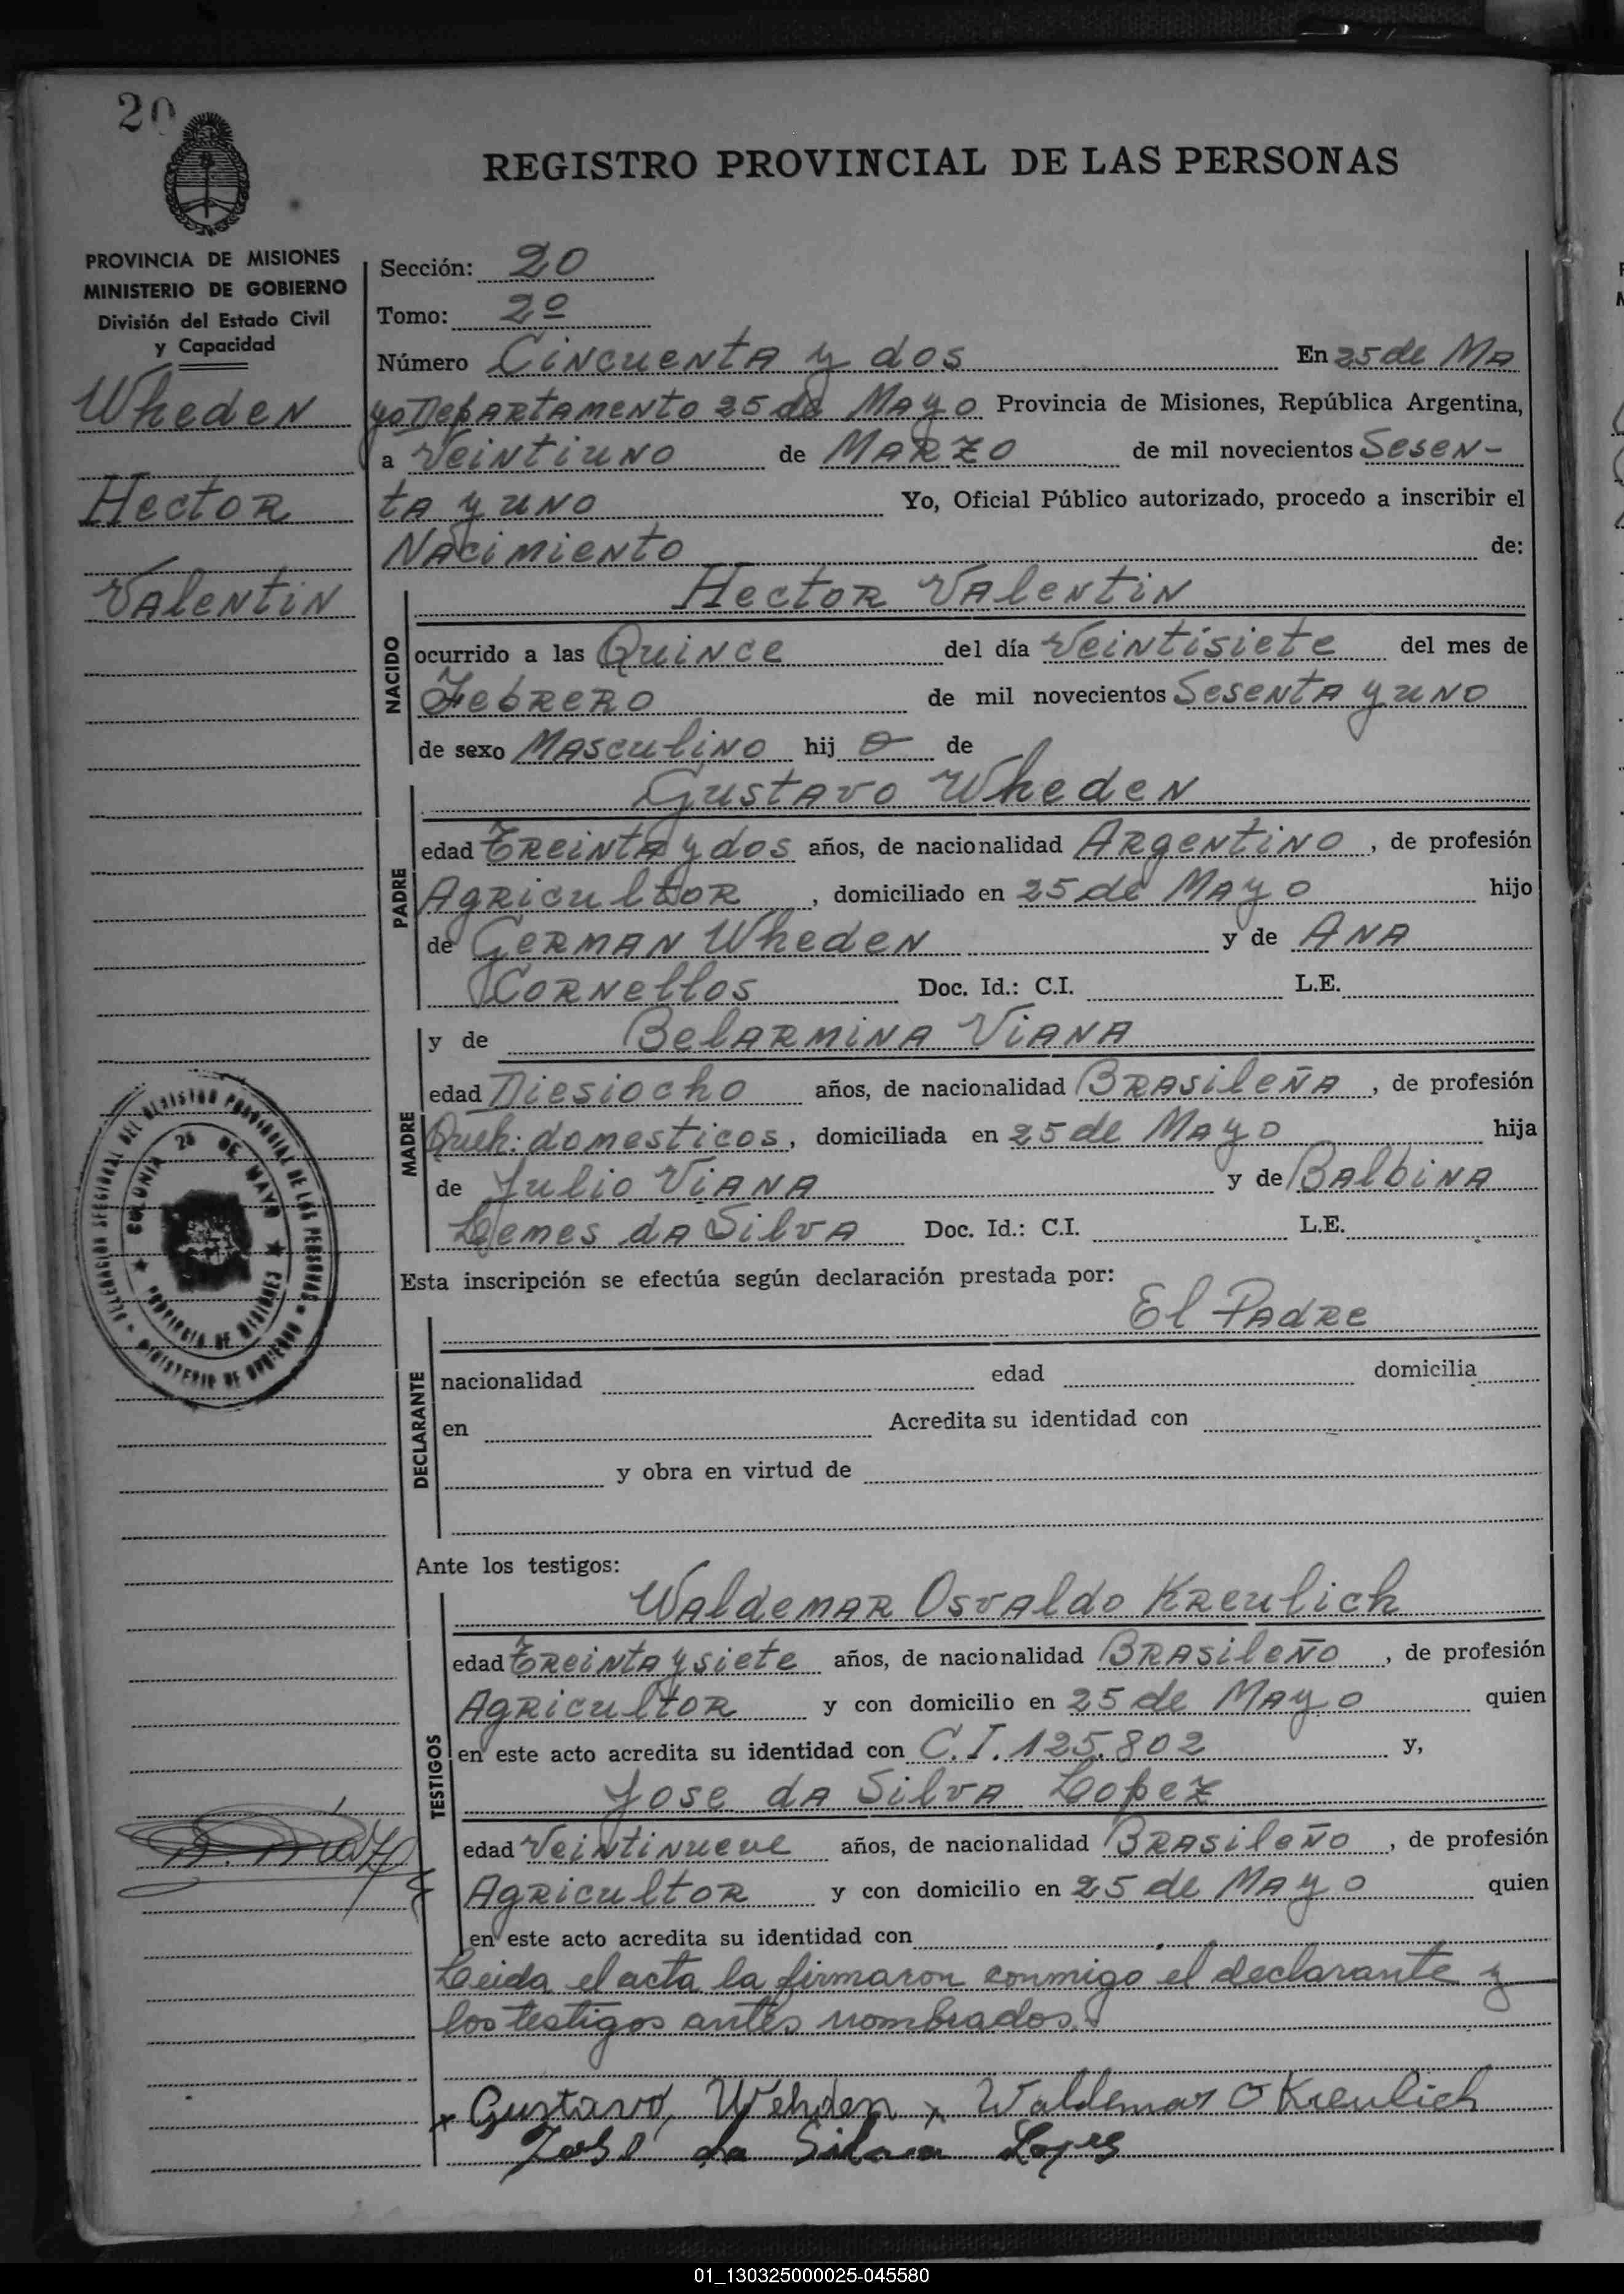 20
REGISTRO PROVINCIAL DE LAS PERSONAS
PROVINCIA DE MISIONES
MINISTERIO DE GOBIERNO
División del Estado Civil
y Capacidad
Wheden
Hector
Valentin
Sección: 20
Tomo: 2º
Número Cincuenta y dos En 25 de Ma
yo Departamento 25 de Mayo Provincia de Misiones, República Argentina,
a Veintiuno de Marzo de mil novecientos Sesen-
ta y uno Yo, Oficial Público autorizado, procedo a inscribir el
Nacimiento de:
NACIDO
Hector Valentin
ocurrido a las Quince del día Veintisiete del mes de
Febrero de mil novecientos Sesenta y uno
de sexo Masculino hij o de
PADRE
Gustavo Wheden
edad Treinta y dos años, de nacionalidad Argentino, de profesión
Agricultor, domiciliado en 25 de Mayo hijo
de German Wheden y de Ana
Cornellos Doc. Id.: C.I. L.E.
MADRE
y de Belarmina Viana
edad Diesiocho años, de nacionalidad Brasileña, de profesión
Queh: domesticos, domiciliada en 25 de Mayo hija
de Julio Viana y de Balbina
Lemes da Silva Doc. Id.: C.I. L.E.
DELEGACION SECCIONAL DEL REGISTRO PROVINCIAL DE LAS PERSONAS
MINISTERIO DE GOBIERNO
COLONIA 25 DE MAYO
PROVINCIA DE MISIONES
Esta inscripción se efectúa según declaración prestada por:
DECLARANTE
El Padre
nacionalidad edad domicilia
en Acredita su identidad con
y obra en virtud de
Ante los testigos:
TESTIGOS
Waldemar Osvaldo Kreulich
edad Treinta y siete años, de nacionalidad Brasileño, de profesión
Agricultor y con domicilio en 25 de Mayo quien
en este acto acredita su identidad con C.I. 125.802 y,
Jose da Silva Lopez
edad Veintinueve años, de nacionalidad Brasileño, de profesión
Agricultor y con domicilio en 25 de Mayo quien
en este acto acredita su identidad con
Leida el acta la firmaron conmigo el declarante y
los testigos antes nombrados.
x Gustavo Wehden x Waldemar O Kreulich
José da Silva Lopes
01_130325000025-045580